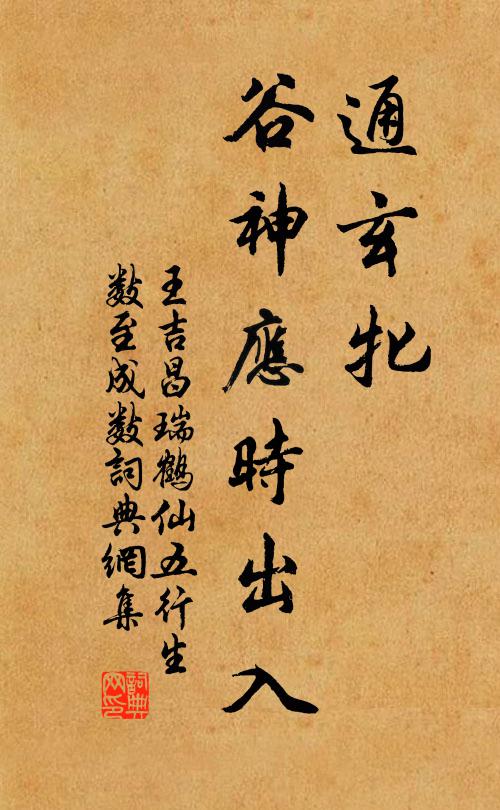 通玄牝
谷神應時出入
王吉昌瑞鶴仙五行生
数至成数詞典網集
詞典网印